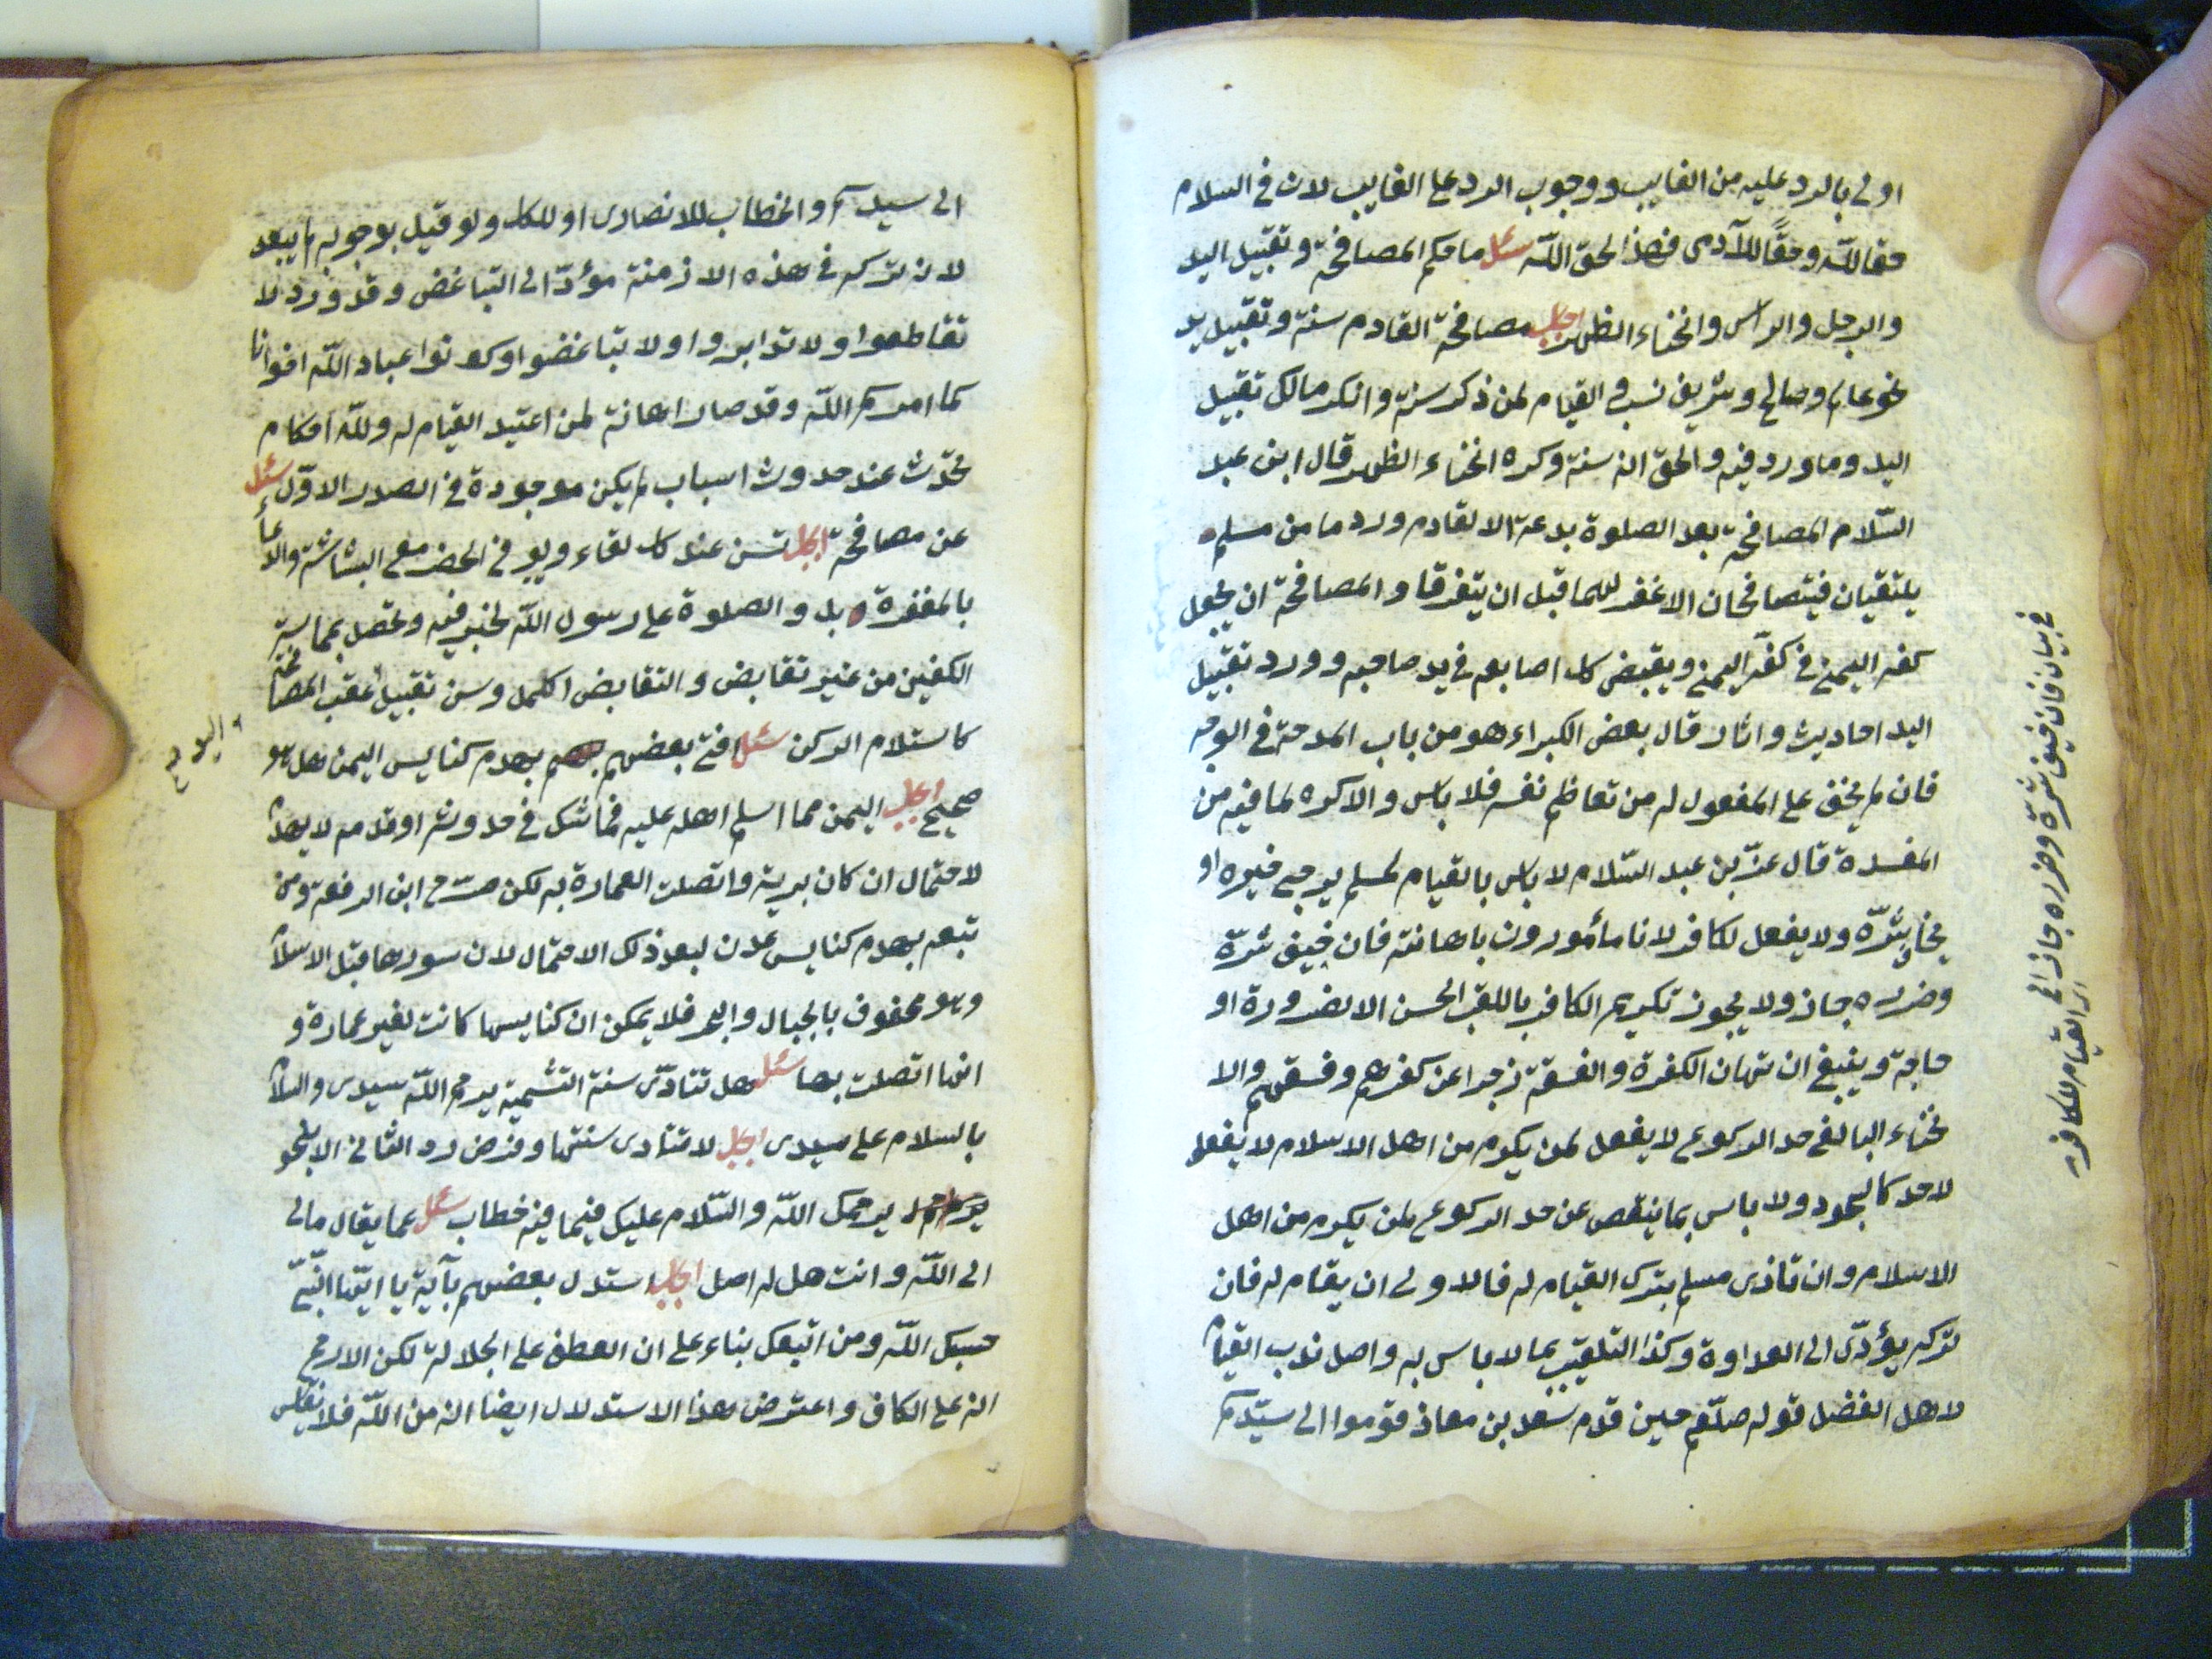 اولى بالرد عليه من الغايب ووجوب الرد على الغايب لان في السلام
حقا لله وحقًا للآدمى فهذا لحق الله سئل ما حكم المصافحة وتقبيل اليد
والرجل والراس وانحناء الظهر اجاب مصافحة القادم سنة وتقبيل يد
نحو عالم وصالح وشريف نسب والقيام لمن ذكر سنة وانكر مالك تقبيل
اليد وما ورد فيه والحق انه سنة وكره انحناء الظهر قال ابن عبد
السّلام المصافحة بعد الصلوة بدعة الا لقادم ورد ما من مسلم
يلتقيان فيتصافحان الا غفر لهما قبل ان يتفرقا والمصافحة ان يجعل
كفه اليمنى في كفّه اليمنى ويقبض كل اصابعه في يد صاحبه وورد تقبيل
اليد احاديث واثار قال بعض الكبراء هو من باب المدحة في الوجه
فان لم يخف على المفعول له من تعاظم نفسه فلا باس والا كره لما فيه من
المفسدة قال عزّ بن عبد السّلام لا باس بالقيام لمسلم يرجى خيره او
يخاف شرّه ولا يفعل لكافر لانا مأمورون باهانته فان خيف شرّه
وضرره جاز ولا يجوز تكريم الكافر باللقب الحسن الا لضرورة او
حاجة وينبغي ان تهان الكفرة والفسقة زجرا عن كفرهم وفسقهم والا
نحناء البالغ حد الركوع لا يفعل لمن يكرم من اهل الاسلام لا يفعل
لاحد كالسجود ولا باس بما ينقص عن حد الركوع لمن يكرم من اهل
الاسلام وان تاذى مسلم بترك القيام له فالاولى ان يقام له فان
تركه يؤدّى الى العداوة وكذا التلقيب بما لا باس به واصل ندب القيام
لاهل الفضل قوله صلّعم حين قدم سعد بن معاذ قوموا الى سيّدكم
في بيان فان خيف شرّه وضرره جاز الخ
اى القيام للكافر
الى سيدكم والخطاب للانصارى او للكل ولو قيل بوجوبه لم يبعد
لان تركه في هذه الازمنة مؤدّ الى التباغض وقد ورد لا
تقاطعوا ولا تدابروا ولا تباغضوا وكونوا عباد اللّه اخوانا
كما امركم اللّه وقد صار اهانة لمن اعتيد القيام له وللّه احكام
تحدّث عند حدوث اسباب لم يكن موجودة في الصدر الاوّل سئل
عن مصافحة اجاب تسن عند كل لقاء ولو في الحضر مع البشاشة والدعاء
بالمغفرة بل والصلوة على رسول اللّه لخبر فيه وتحصل بمماسة
الكفين من غير تقابض والتقابض اكمل وسن تقبيل عقب المصافحة
اليد صح
كاستلام الركن سئل افتى بعضهم بهدم كنايس اليمن هل هو
صحيح اجاب اليمن مما اسلم اهله عليه فما شك في حدوثه او قدمه لا يهدم
لاحتمال ان كان برية واتصلت العمارة به لكن صرّح ابن الرفعة ومن
تبعه بهدم كنايس عدن لبعد ذلك الاحتمال لان سورها قبل الاسلام
وهو محفوف بالجبال والبحر فلا يمكن ان كنايسها كانت لغير عمارة و
انها اتصلت بها سئل هل تتادّى سنة التشمية يرحم اللّه سيدى والسلام
بالسلام على سيدى اجاب لا تتادى سنتها وفرض رد الثاني الا بنحو
يرحمك اللّه والسّلام عليك فيما فيه خطاب سئل عما يقال مالى
الى اللّه وانت هل له اصل اجاب استدل بعضهم بآية يا ايّها النّبيّ
حسبك اللّه ومن اتبعك بناء على ان العطف على الجلالة لكن الارجح
انه على الكاف واعترض هذا الاستدلال ايضا انه من اللّه فلا يقاس